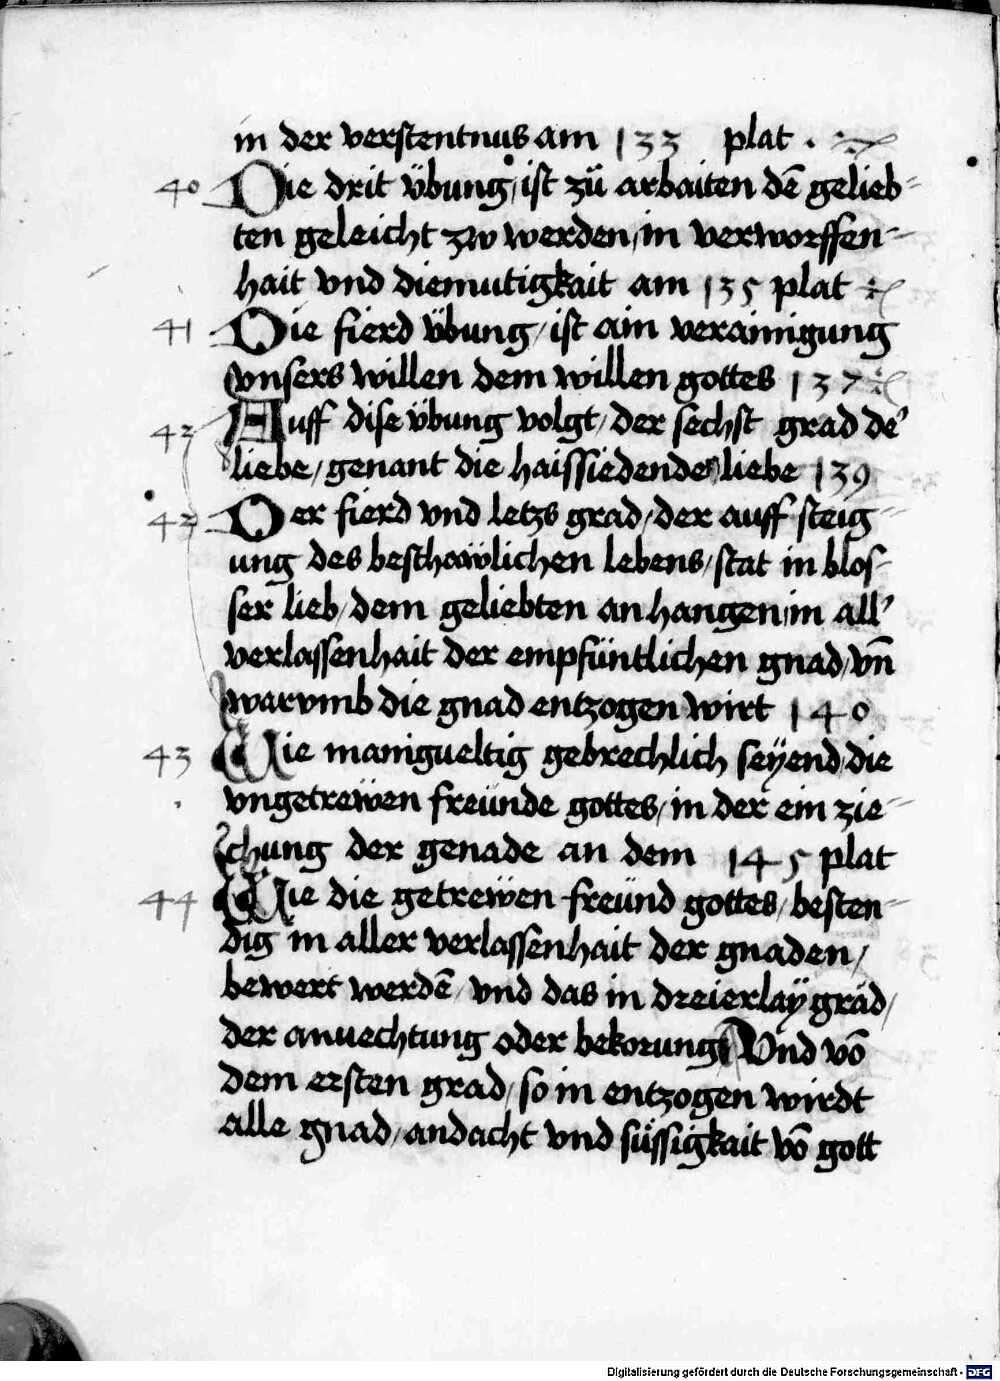 in der verstentnus am 133 plat .
40 Die drit übung / ist zü arbaiten dē gelieb=
ten geleicht zw werden / in verworffen=
hait vnd diemutigkait am 135 plat
41 Die fierd übung / ist ain verainigung
vnsers willen dem willen gottes 137
42 Auff dise übung volgt / der sechst grad de'
liebe / genant die haissiedende liebe 139
42 Der fierd vnd letzs grad / der auff steig=
ung des beschawlichen lebens / stat in blos=
ser lieb / dem geliebten an hangen in all'
verlassenhait der empfüntlichen gnad / vn̄
warvmb die gnad entzogen wirt 140
43 Wie manigueltig gebrechlich seyend / die
vngetrewen freünde gottes / in der ein zie=
chung der genade an dem 145 plat
44 Wie die getrewen freünd gottes / besten=
dig in aller verlassenhait der gnaden /
bewert werdē / vnd das in dreierlaÿ grad /
der anuechtung oder bekorung Vnd vō
dem ersten grad / so in entzogen wirdt
alle gnad / andacht vnd süssigkait vō gott
Digitalisierung gefördert durch die Deutsche Forschungsgemeinschaft - DFG